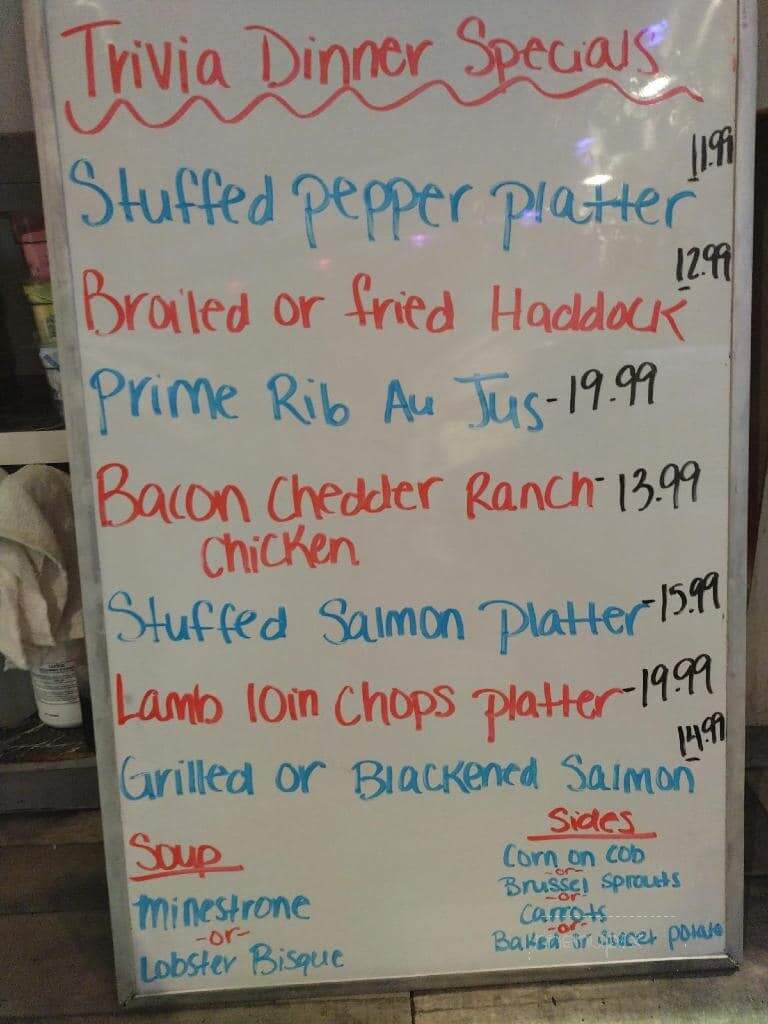 Trivia Dinner Specials
Stuffed pepper platter 11.99
Broiled or fried Haddock 12.99
Prime Rib Au Jus - 19.99
Bacon Chedder Ranch - 13.99
Chicken
Stuffed Salmon Platter - 15.99
Lamb loin Chops platter - 19.99
Grilled or Blackened Salmon 14.99
Soup
Minestrone
-or-
Lobster Bisque
Sides
Corn on cob
-or-
Brussel sprouts
-or-
Carrots
-or-
Baked or sweet potato